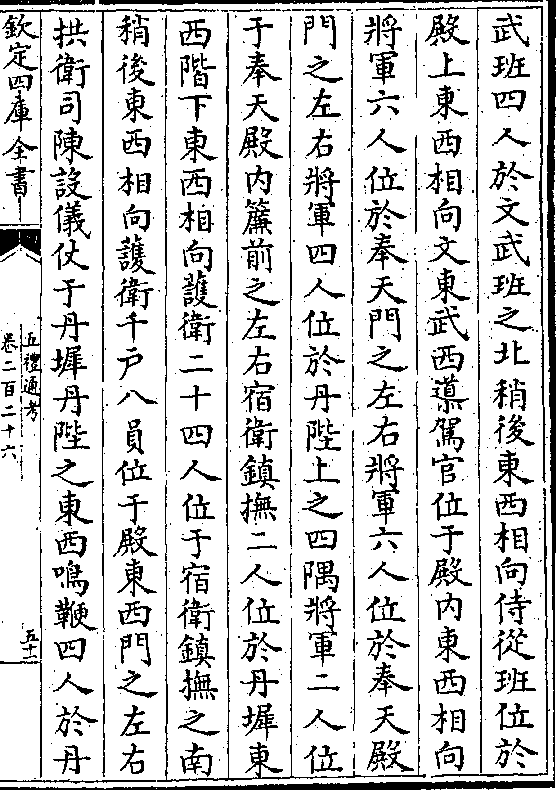 武班四人於文武班之北稍後東西相向侍從班位於
殿上東西相向文東武西𨗳駕官位于殿内東西相向
將軍六人位於奉天門之左右將軍六人位於奉天殿
門之左右將軍四人位於丹陛上之四隅將軍二人位
于奉天殿内簾前之左右宿衛鎮撫二人位於丹墀東
西階下東西相向護衛二十四人位于宿衛鎮撫之南
稍後東西相向護衛千戸八員位于殿東西門之左右
拱衛司陳設儀仗于丹墀丹陛之東西鳴鞭四人於丹
欽定四庫全書
五禮通考
卷二百二十六
五十一